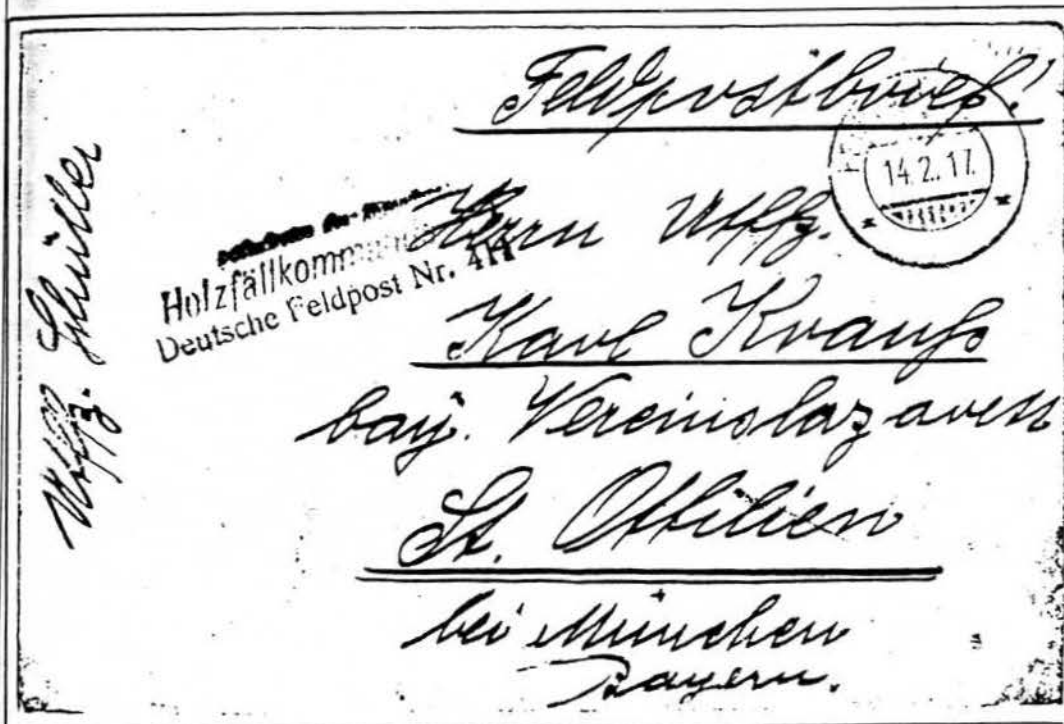 Feldpostbrief!
14.2.17.
Holzfällkomm
Deutsche Feldpost Nr. 411
Herrn Uffz.
Karl Krauß
bay. Vereinslazarett
St. Ottilien
bei München
Bayern.
Uffz.